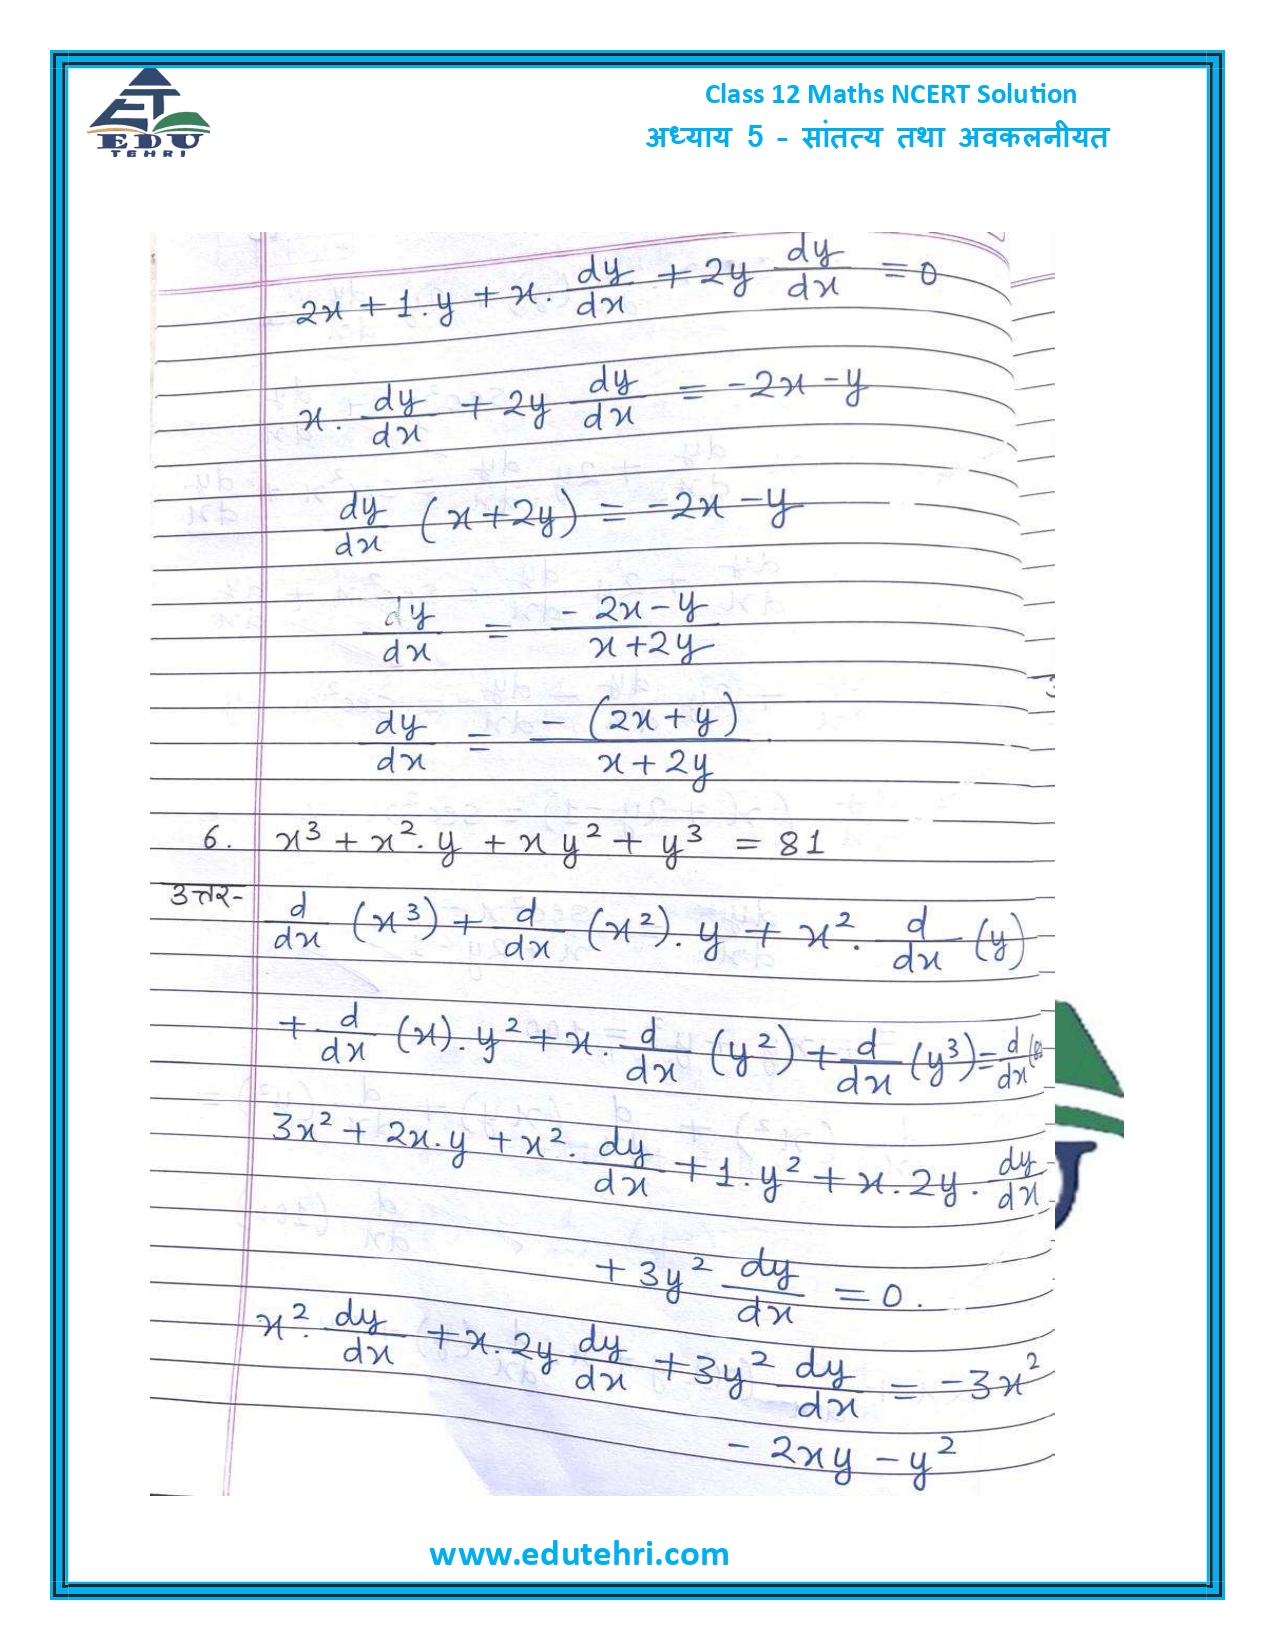 Class 12 Maths NCERT Solution
अध्याय 5 - सांतत्य तथा अवकलनीयत
EDU
TEHRI
2x + 1.y + x. dy/dx + 2y dy/dx = 0
x. dy/dx + 2y dy/dx = -2x - y
dy/dx (x+2y) = -2x - y
dy/dx = (-2x - y)/(x+2y)
dy/dx = -(2x+y)/(x+2y)
6. x³ + x².y + xy² + y³ = 81
उत्तर- d/dx (x³) + d/dx (x²).y + x². d/dx (y)
+ d/dx (x).y² + x. d/dx (y²) + d/dx (y³) = d/dx
3x² + 2x.y + x². dy/dx + 1.y² + x.2y. dy/dx
+ 3y² dy/dx = 0.
x². dy/dx + x.2y dy/dx + 3y² dy/dx = -3x²
- 2xy - y²
www.edutehri.com